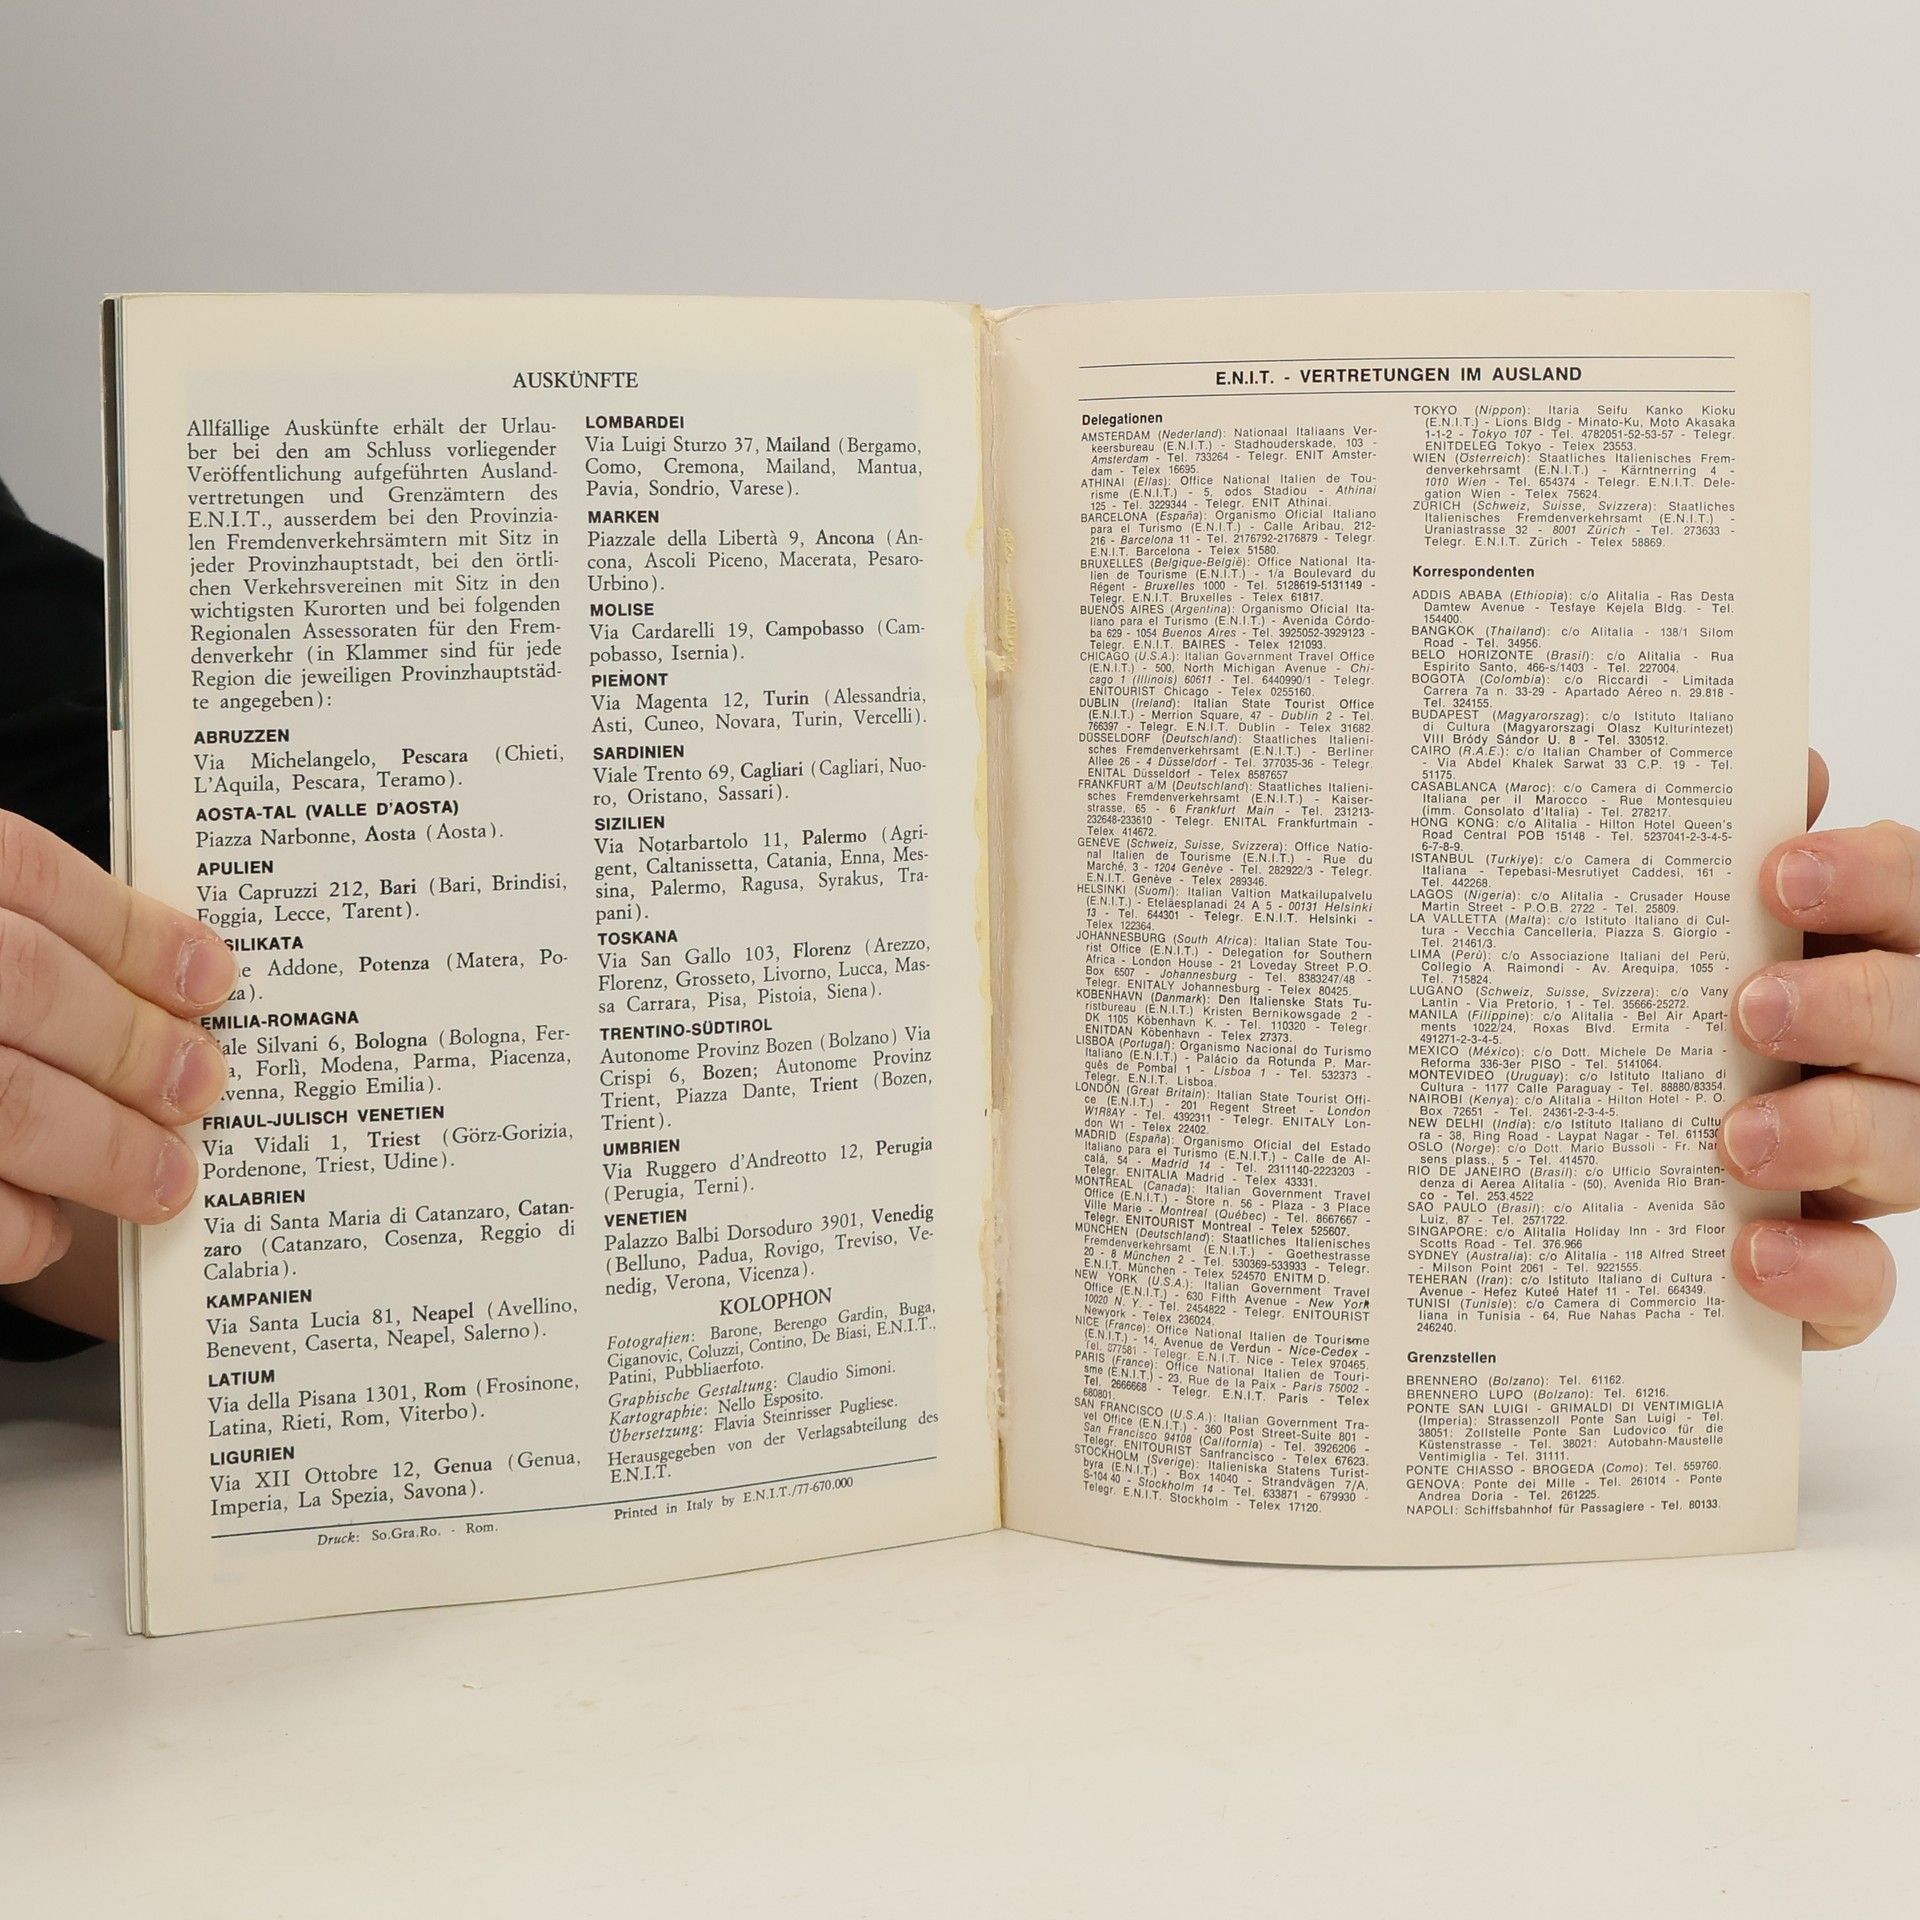 AUSKÜNFTE
Allfällige Auskünfte erhält der Urlau-
ber bei den am Schluss vorliegender
Veröffentlichung aufgeführten Ausland-
vertretungen und Grenzämtern des
E.N.I.T., ausserdem bei den Provinzia-
len Fremdenverkehrsämtern mit Sitz in
jeder Provinzhauptstadt, bei den örtli-
chen Verkehrsvereinen mit Sitz in den
wichtigsten Kurorten und bei folgenden
Regionalen Assessoraten für den Frem-
denverkehr (in Klammer sind für jede
Region die jeweiligen Provinzhauptstäd-
te angegeben):
ABRUZZEN
Via Michelangelo, Pescara (Chieti,
L'Aquila, Pescara, Teramo).
AOSTA-TAL (VALLE D'AOSTA)
Piazza Narbonne, Aosta (Aosta).
APULIEN
Via Capruzzi 212, Bari (Bari, Brindisi,
Foggia, Lecce, Tarent).
SILIKATA
Addone, Potenza (Matera, Po-
za).
EMILIA-ROMAGNA
ale Silvani 6, Bologna (Bologna, Fer-
a, Forlì, Modena, Parma, Piacenza,
venna, Reggio Emilia).
FRIAUL-JULISCH VENETIEN
Via Vidali 1, Triest (Görz-Gorizia,
Pordenone, Triest, Udine).
KALABRIEN
Via di Santa Maria di Catanzaro, Catan-
zaro (Catanzaro, Cosenza, Reggio di
Calabria).
KAMPANIEN
Via Santa Lucia 81, Neapel (Avellino,
Benevent, Caserta, Neapel, Salerno).
LATIUM
Via della Pisana 1301, Rom (Frosinone,
Latina, Rieti, Rom, Viterbo).
LIGURIEN
Via XII Ottobre 12, Genua (Genua,
Imperia, La Spezia, Savona).
LOMBARDEI
Via Luigi Sturzo 37, Mailand (Bergamo,
Como, Cremona, Mailand, Mantua,
Pavia, Sondrio, Varese).
MARKEN
Piazzale della Libertà 9, Ancona (An-
cona, Ascoli Piceno, Macerata, Pesaro-
Urbino).
MOLISE
Via Cardarelli 19, Campobasso (Cam-
pobasso, Isernia).
PIEMONT
Via Magenta 12, Turin (Alessandria,
Asti, Cuneo, Novara, Turin, Vercelli).
SARDINIEN
Viale Trento 69, Cagliari (Cagliari, Nuo-
ro, Oristano, Sassari).
SIZILIEN
Via Notarbartolo 11, Palermo (Agri-
gent, Caltanissetta, Catania, Enna, Mes-
sina, Palermo, Ragusa, Syrakus, Tra-
pani).
TOSKANA
Via San Gallo 103, Florenz (Arezzo,
Florenz, Grosseto, Livorno, Lucca, Mas-
sa Carrara, Pisa, Pistoia, Siena).
TRENTINO-SÜDTIROL
Autonome Provinz Bozen (Bolzano) Via
Crispi 6, Bozen; Autonome Provinz
Trient, Piazza Dante, Trient (Bozen,
Trient).
UMBRIEN
Via Ruggero d'Andreotto 12, Perugia
(Perugia, Terni).
VENETIEN
Palazzo Balbi Dorsoduro 3901, Venedig
(Belluno, Padua, Rovigo, Treviso, Ve-
nedig, Verona, Vicenza).
KOLOPHON
Fotografien: Barone, Berengo Gardin, Buga,
Ciganovic, Coluzzi, Contino, De Biasi, E.N.I.T.,
Patini, Pubbliaerfoto.
Graphische Gestaltung: Claudio Simoni.
Kartographie: Nello Esposito.
Übersetzung: Flavia Steinrisser Pugliese.
Herausgegeben von der Verlagsabteilung des
E.N.I.T.
Druck: So.Gra.Ro. - Rom.
Printed in Italy by E.N.I.T./77-670.000
E.N.I.T. - VERTRETUNGEN IM AUSLAND
Delegationen
AMSTERDAM (Nederland): Nationaal Italiaans Ver-
keersbureau (E.N.I.T.) - Stadhouderskade, 103 -
Amsterdam - Tel. 733264 - Telegr. ENIT Amster-
dam - Telex 16695.
ATHINAI (Ellas): Office National Italien de Tou-
risme (E.N.I.T.) - 5, odos Stadiou - Athinai
125 - Tel. 3229344 - Telegr. ENIT Athinai.
BARCELONA (España): Organismo Oficial Italiano
para el Turismo (E.N.I.T.) - Calle Aribau, 212-
216 - Barcelona 11 - Tel. 2176792-2176879 - Telegr.
E.N.I.T. Barcelona - Telex 51580.
BRUXELLES (Belgique-België): Office National Ita-
lien de Tourisme (E.N.I.T.) - 1/a Boulevard du
Régent - Bruxelles 1000 - Tel. 5128619-5131149 -
Telegr. E.N.I.T. Bruxelles - Telex 61817.
BUENOS AIRES (Argentina): Organismo Oficial Ita-
liano para el Turismo (E.N.I.T.) - Avenida Córdo-
ba 629 - 1054 Buenos Aires - Tel. 3925052-3929123 -
Telegr. E.N.I.T. BAIRES - Telex 121093.
CHICAGO (U.S.A.): Italian Government Travel Office
(E.N.I.T.) - 500, North Michigan Avenue - Chi-
cago 1 (Illinois) 60611 - Tel. 6440990/1 - Telegr.
ENITOURIST Chicago - Telex 0255160.
DUBLIN (Ireland): Italian State Tourist Office
(E.N.I.T.) - Merrion Square, 47 - Dublin 2 - Tel.
766397 - Telegr. E.N.I.T. Dublin - Telex 31682.
DÜSSELDORF (Deutschland): Staatliches Italieni-
sches Fremdenverkehrsamt (E.N.I.T.) - Berliner
Allee 26 - 4 Düsseldorf - Tel. 377035-36 - Telegr.
ENITAL Düsseldorf - Telex 8587657
FRANKFURT a/M (Deutschland): Staatliches Italieni-
sches Fremdenverkehrsamt (E.N.I.T.) - Kaiser-
strasse, 65 - 6 Frankfurt Main - Tel. 231213-
232648-233610 - Telegr. ENITAL Frankfurtmain -
Telex 414672.
GENÈVE (Schweiz, Suisse, Svizzera): Office Natio-
nal Italien de Tourisme (E.N.I.T.) - Rue du
Marché, 3 - 1204 Genève - Tel. 282922/3 - Telegr.
E.N.I.T. Genève - Telex 289346.
HELSINKI (Suomi): Italian Valtion Matkailupalvelu
(E.N.I.T.) - Eteläesplanadi 24 A 5 - 00131 Helsinki
13 - Tel. 644301 - Telegr. E.N.I.T. Helsinki -
Telex 122364.
JOHANNESBURG (South Africa): Italian State Tou-
rist Office (E.N.I.T.) - Delegation for Southern
Africa - London House - 21 Loveday Street P.O.
Box 6507 - Johannesburg - Tel. 8383247/48 -
Telegr. ENITALY Johannesburg - Telex 80425.
KÖBENHAVN (Danmark): Den Italienske Stats Tu-
ristbureau (E.N.I.T.) Kristen Bernikowsgade 2 -
DK 1105 Köbenhavn K. - Tel. 110320 - Telegr.
ENITDAN Köbenhavn - Telex 27373.
LISBOA (Portugal): Organismo Nacional do Turismo
Italiano (E.N.I.T.) - Palácio da Rotunda P. Mar-
quês de Pombal 1 - Lisboa 1 - Tel. 532373 -
Telegr. E.N.I.T. Lisboa.
LONDON (Great Britain): Italian State Tourist Offi-
ce (E.N.I.T.) - 201 Regent Street - London
W1R8AY - Tel. 4392311 - Telegr. ENITALY Lon-
don W1 - Telex 22402.
MADRID (España): Organismo Oficial del Estado
Italiano para el Turismo (E.N.I.T.) - Calle de Al-
calá, 54 - Madrid 14 - Tel. 2311140-2223203 -
Telegr. ENITALIA Madrid - Telex 43331.
MONTREAL (Canada): Italian Government Travel
Office (E.N.I.T.) - Store n. 56 - Plaza - 3 Place
Ville Marie - Montreal (Québec) - Tel. 8667667 -
Telegr. ENITOURIST Montreal - Telex 525607.
MÜNCHEN (Deutschland): Staatliches Italienisches
Fremdenverkehrsamt (E.N.I.T.) - Goethestrasse
20 - 8 München 2 - Tel. 530369-533933 - Telegr.
E.N.I.T. München - Telex 524570 ENITM D.
NEW YORK (U.S.A.): Italian Government Travel
Office (E.N.I.T.) - 630 Fifth Avenue - New York
10020 N. Y. - Tel. 2454822 - Telegr. ENITOURIST
Newyork - Telex 236024.
NICE (France): Office National Italien de Tourisme
(E.N.I.T.) - 14, Avenue de Verdun - Nice-Cedex -
Tel. 877581 - Telegr. E.N.I.T. Nice - Telex 970465.
PARIS (France): Office National Italien de Touri-
sme (E.N.I.T.) - 23, Rue de la Paix - Paris 75002 -
Tel. 2666668 - Telegr. E.N.I.T. Paris - Telex
680801.
SAN FRANCISCO (U.S.A.): Italian Government Tra-
vel Office (E.N.I.T.) - 360 Post Street-Suite 801 -
San Francisco 94108 (California) - Tel. 3926206 -
Telegr. ENITOURIST Sanfrancisco - Telex 67623.
STOCKHOLM (Sverige): Italieniska Statens Turist-
byra (E.N.I.T.) - Box 14040 - Strandvägen 7/A,
S-104 40 - Stockholm 14 - Tel. 633871 - 679930 -
Telegr. E.N.I.T. Stockholm - Telex 17120.
TOKYO (Nippon): Itaria Seifu Kanko Kioku
(E.N.I.T.) - Lions Bldg - Minato-Ku, Moto Akasaka
1-1-2 - Tokyo 107 - Tel. 4782051-52-53-57 - Telegr.
ENITDELEG Tokyo - Telex 23553.
WIEN (Österreich): Staatliches Italienisches Frem-
denverkehrsamt (E.N.I.T.) - Kärntnerring 4 -
1010 Wien - Tel. 654374 - Telegr. E.N.I.T. Dele-
gation Wien - Telex 75624.
ZÜRICH (Schweiz, Suisse, Svizzera): Staatliches
Italienisches Fremdenverkehrsamt (E.N.I.T.) -
Uraniastrasse 32 - 8001 Zürich - Tel. 273633 -
Telegr. E.N.I.T. Zürich - Telex 58869.
Korrespondenten
ADDIS ABABA (Ethiopia): c/o Alitalia - Ras Desta
Damtew Avenue - Tesfaye Kejela Bldg. - Tel.
154400.
BANGKOK (Thailand): c/o Alitalia - 138/1 Silom
Road - Tel. 34956.
BELO HORIZONTE (Brasil): c/o Alitalia - Rua
Espirito Santo, 466-s/1403 - Tel. 227004.
BOGOTÀ (Colombia): c/o Riccardi - Limitada
Carrera 7a n. 33-29 - Apartado Aéreo n. 29.818 -
Tel. 324155.
BUDAPEST (Magyarorszag): c/o Istituto Italiano
di Cultura (Magyarorszagi Olasz Kulturintezet)
VIII Bródy Sándor U. 8 - Tel. 330512.
CAIRO (R.A.E.): c/o Italian Chamber of Commerce
- Via Abdel Khalek Sarwat 33 C.P. 19 - Tel.
51175.
CASABLANCA (Maroc): c/o Camera di Commercio
Italiana per il Marocco - Rue Montesquieu
(imm. Consolato d'Italia) - Tel. 278217.
HONG KONG: c/o Alitalia - Hilton Hotel Queen's
Road Central POB 15148 - Tel. 5237041-2-3-4-5-
6-7-8-9.
ISTANBUL (Turkiye): c/o Camera di Commercio
Italiana - Tepebasi-Mesrutiyet Caddesi, 161 -
Tel. 442268.
LAGOS (Nigeria): c/o Alitalia - Crusader House
Martin Street - P.O.B. 2722 - Tel. 25809.
LA VALLETTA (Malta): c/o Istituto Italiano di Cul-
tura - Vecchia Cancelleria, Piazza S. Giorgio -
Tel. 21461/3.
LIMA (Perù): c/o Associazione Italiani del Perù,
Collegio A. Raimondi - Av. Arequipa, 1055 -
Tel. 715824.
LUGANO (Schweiz, Suisse, Svizzera): c/o Vany
Lantin - Via Pretorio, 1 - Tel. 35666-25272.
MANILA (Filippine): c/o Alitalia - Bel Air Apart-
ments 1022/24, Roxas Blvd. Ermita - Tel.
491271-2-3-4-5.
MEXICO (México): c/o Dott. Michele De Maria -
Reforma 336-3er PISO - Tel. 5141064.
MONTEVIDEO (Uruguay): c/o Istituto Italiano di
Cultura - 1177 Calle Paraguay - Tel. 88880/83354.
NAIROBI (Kenya): c/o Alitalia - Hilton Hotel - P. O.
Box 72651 - Tel. 24361-2-3-4-5.
NEW DELHI (India): c/o Istituto Italiano di Cultu
ra - 38, Ring Road - Laypat Nagar - Tel. 61153
OSLO (Norge): c/o Dott. Mario Bussoli - Fr. Nan
sens plass., 5 - Tel. 414570.
RIO DE JANEIRO (Brasil): c/o Ufficio Sovrainten-
denza di Aerea Alitalia - (50), Avenida Rio Bran-
co - Tel. 253.4522
SÃO PAULO (Brasil): c/o Alitalia - Avenida São
Luiz, 87 - Tel. 2571722.
SINGAPORE: c/o Alitalia Holiday Inn - 3rd Floor
Scotts Road - Tel. 376.966
SYDNEY (Australia): c/o Alitalia - 118 Alfred Street
- Milson Point 2061 - Tel. 9221555.
TEHERAN (Iran): c/o Istituto Italiano di Cultura -
Avenue - Hefez Kuteé Hatef 11 - Tel. 664349.
TUNISI (Tunisie): c/o Camera di Commercio Ita-
liana in Tunisia - 64, Rue Nahas Pacha - Tel.
246240.
Grenzstellen
BRENNERO (Bolzano): Tel. 61162.
BRENNERO LUPO (Bolzano): Tel. 61216.
PONTE SAN LUIGI - GRIMALDI DI VENTIMIGLIA
(Imperia): Strassenzoll Ponte San Luigi - Tel.
38051: Zollstelle Ponte San Ludovico für die
Küstenstrasse - Tel. 38021: Autobahn-Maustelle
Ventimiglia - Tel. 31111.
PONTE CHIASSO - BROGEDA (Como): Tel. 559760.
GENOVA: Ponte dei Mille - Tel. 261014 - Ponte
Andrea Doria - Tel. 261225.
NAPOLI: Schiffsbahnhof für Passagiere - Tel. 80133.